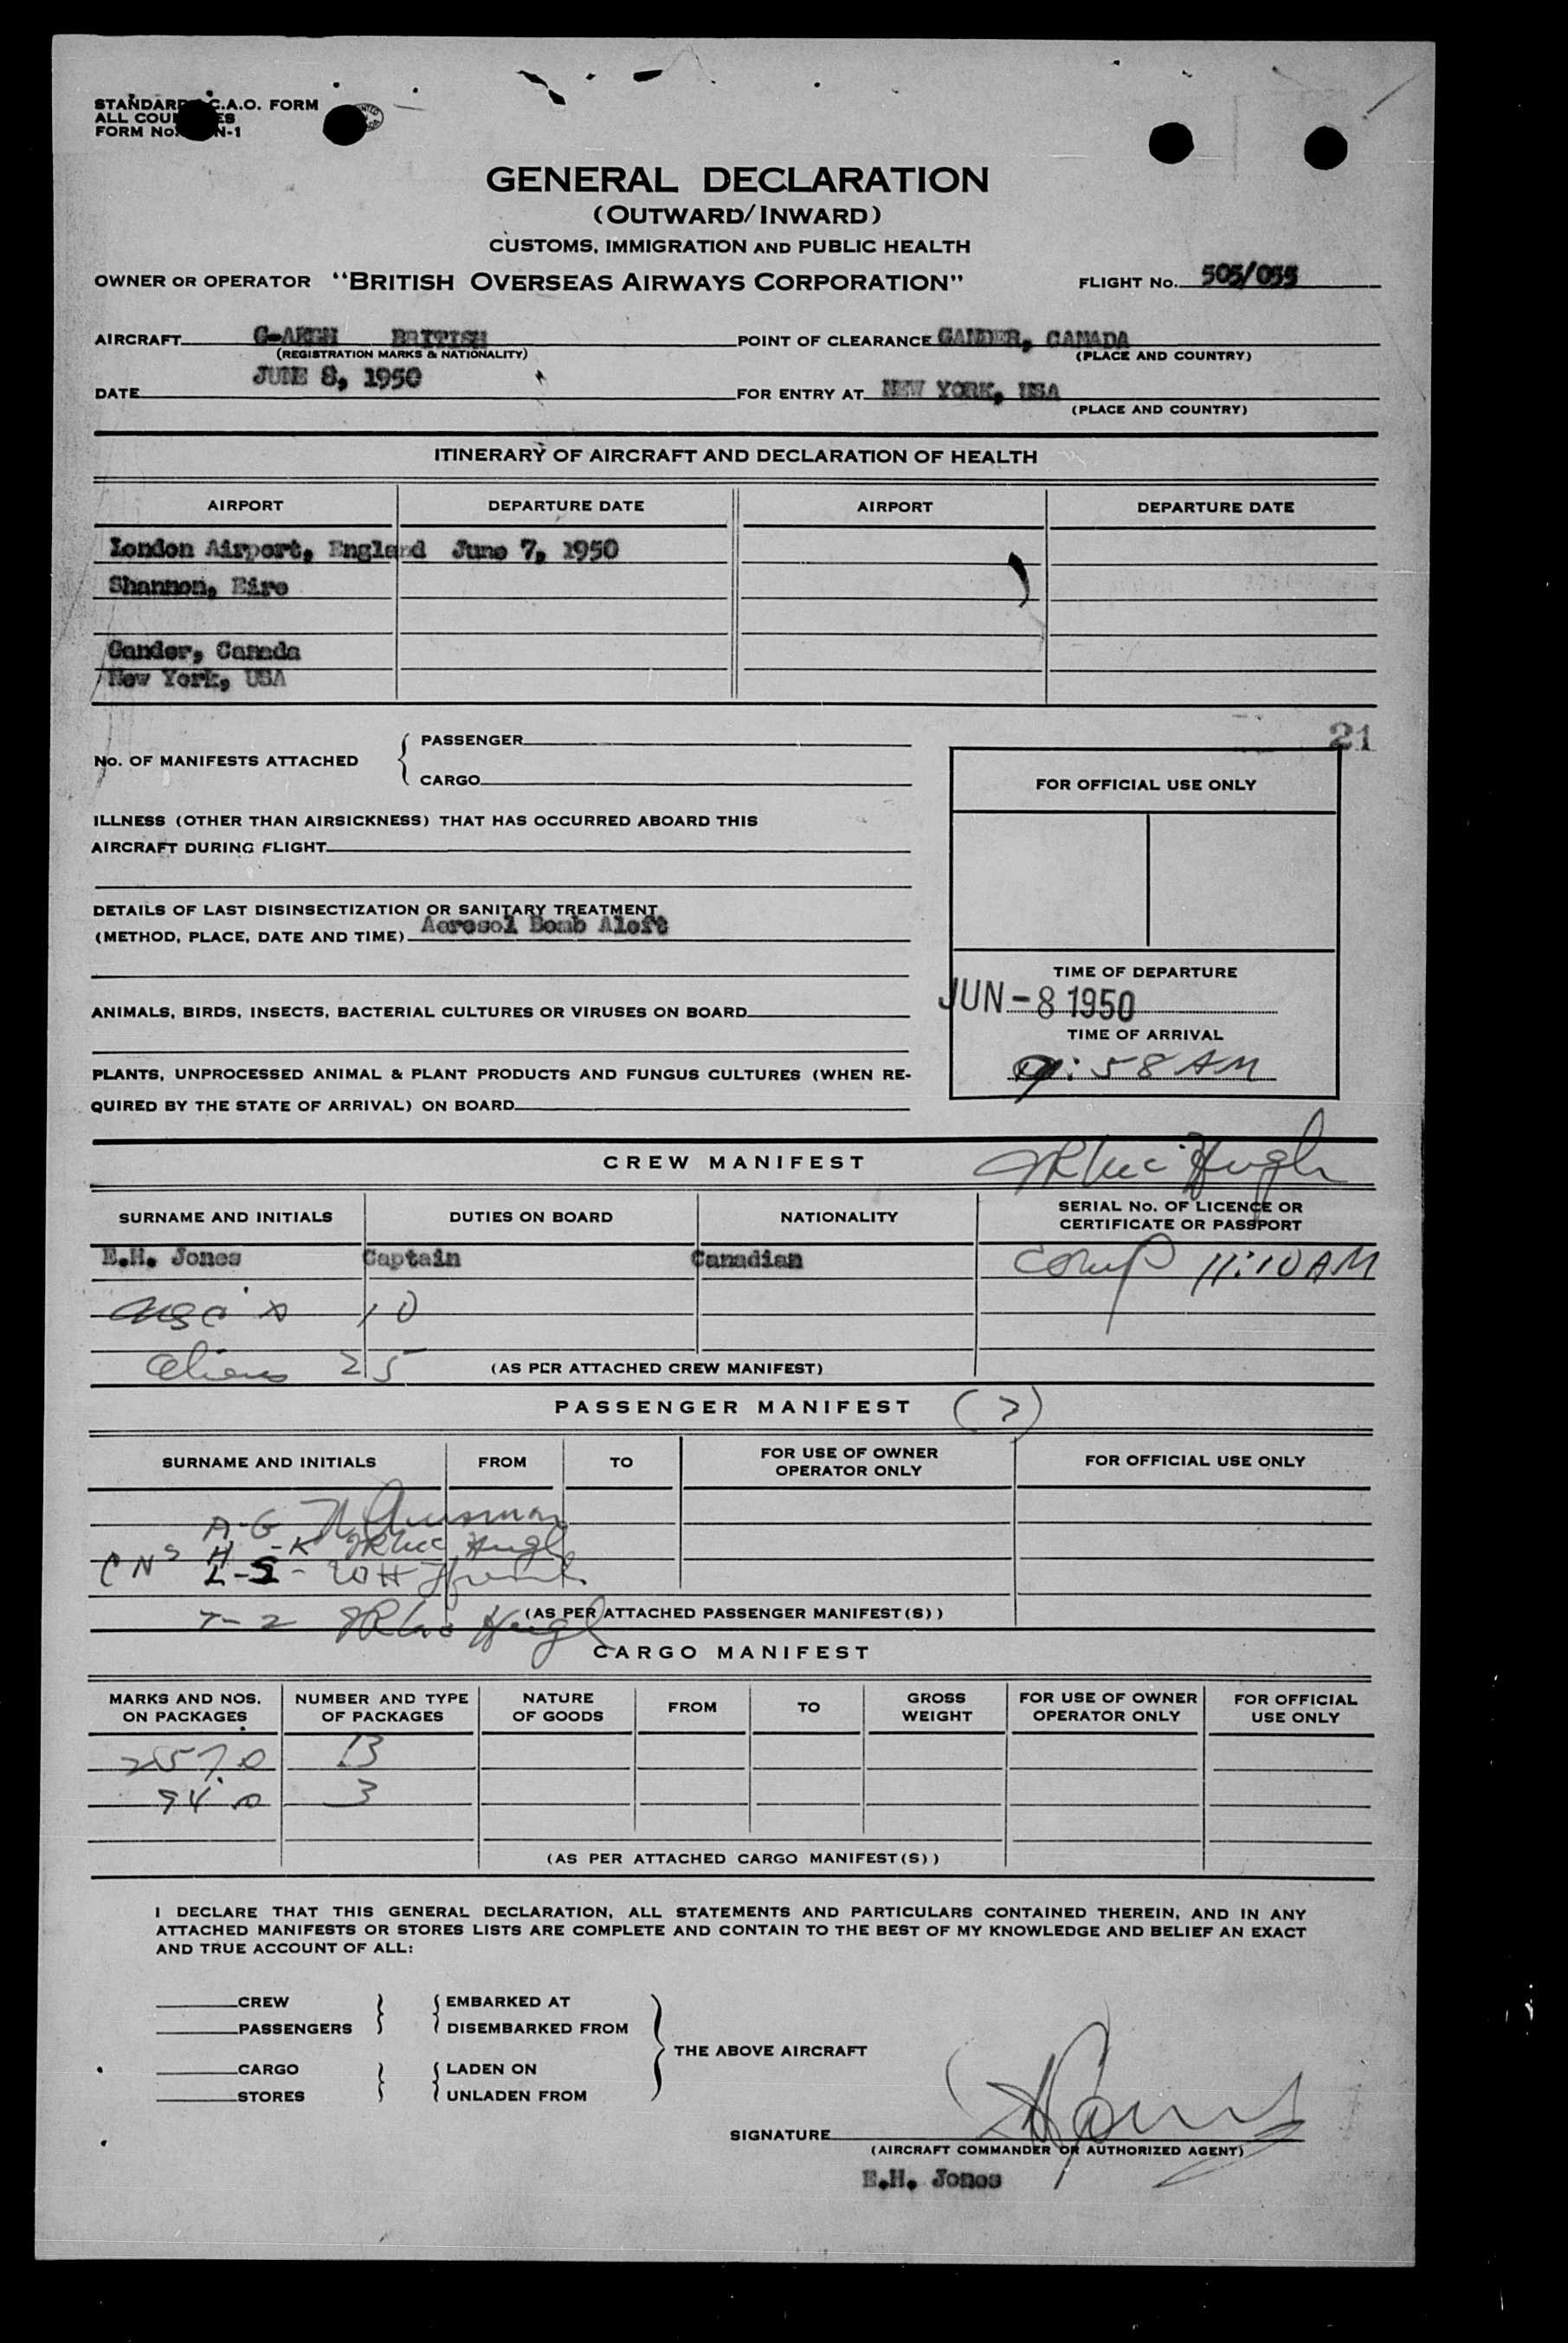 STANDARD C.A.O. FORM
ALL COU ES
FORM No. N-1
GENERAL DECLARATION
(OUTWARD/INWARD)
CUSTOMS, IMMIGRATION AND PUBLIC HEALTH
OWNER OR OPERATOR "BRITISH OVERSEAS AIRWAYS CORPORATION" FLIGHT No. 505/055
AIRCRAFT BRITISH POINT OF CLEARANCE GANDER, CANADA
(REGISTRATION MARKS & NATIONALITY) (PLACE AND COUNTRY)
DATE JUNE 8, 1950 FOR ENTRY AT NEW YORK, USA
(PLACE AND COUNTRY)
ITINERARY OF AIRCRAFT AND DECLARATION OF HEALTH
AIRPORT DEPARTURE DATE AIRPORT DEPARTURE DATE
London Airport, England June 7, 1950
Shannon, Eire
Gander, Canada
New York, USA
21
No. OF MANIFESTS ATTACHED
PASSENGER
CARGO
FOR OFFICIAL USE ONLY
ILLNESS (OTHER THAN AIRSICKNESS) THAT HAS OCCURRED ABOARD THIS
AIRCRAFT DURING FLIGHT
DETAILS OF LAST DISINSECTIZATION OR SANITARY TREATMENT
(METHOD, PLACE, DATE AND TIME) Aerosol Bomb Aloft
TIME OF DEPARTURE
JUN-8 1950
ANIMALS, BIRDS, INSECTS, BACTERIAL CULTURES OR VIRUSES ON BOARD
TIME OF ARRIVAL
9:58 AM
PLANTS, UNPROCESSED ANIMAL & PLANT PRODUCTS AND FUNGUS CULTURES (WHEN RE-
QUIRED BY THE STATE OF ARRIVAL) ON BOARD
CREW MANIFEST
SURNAME AND INITIALS DUTIES ON BOARD NATIONALITY SERIAL No. OF LICENCE OR
CERTIFICATE OR PASSPORT
E.H. Jones Captain Canadian Comp 11:10 AM
10
Aliens 25 (AS PER ATTACHED CREW MANIFEST)
PASSENGER MANIFEST
SURNAME AND INITIALS FROM TO FOR USE OF OWNER
OPERATOR ONLY FOR OFFICIAL USE ONLY
A-G
H-K
L-S
T-Z
(AS PER ATTACHED PASSENGER MANIFEST(S))
CARGO MANIFEST
MARKS AND NOS.
ON PACKAGES NUMBER AND TYPE
OF PACKAGES NATURE
OF GOODS FROM TO GROSS
WEIGHT FOR USE OF OWNER
OPERATOR ONLY FOR OFFICIAL
USE ONLY
13
3
(AS PER ATTACHED CARGO MANIFEST(S))
I DECLARE THAT THIS GENERAL DECLARATION, ALL STATEMENTS AND PARTICULARS CONTAINED THEREIN, AND IN ANY
ATTACHED MANIFESTS OR STORES LISTS ARE COMPLETE AND CONTAIN TO THE BEST OF MY KNOWLEDGE AND BELIEF AN EXACT
AND TRUE ACCOUNT OF ALL:
CREW EMBARKED AT
PASSENGERS DISEMBARKED FROM
THE ABOVE AIRCRAFT
CARGO LADEN ON
STORES UNLADEN FROM
SIGNATURE
(AIRCRAFT COMMANDER OR AUTHORIZED AGENT)
E.H. Jones